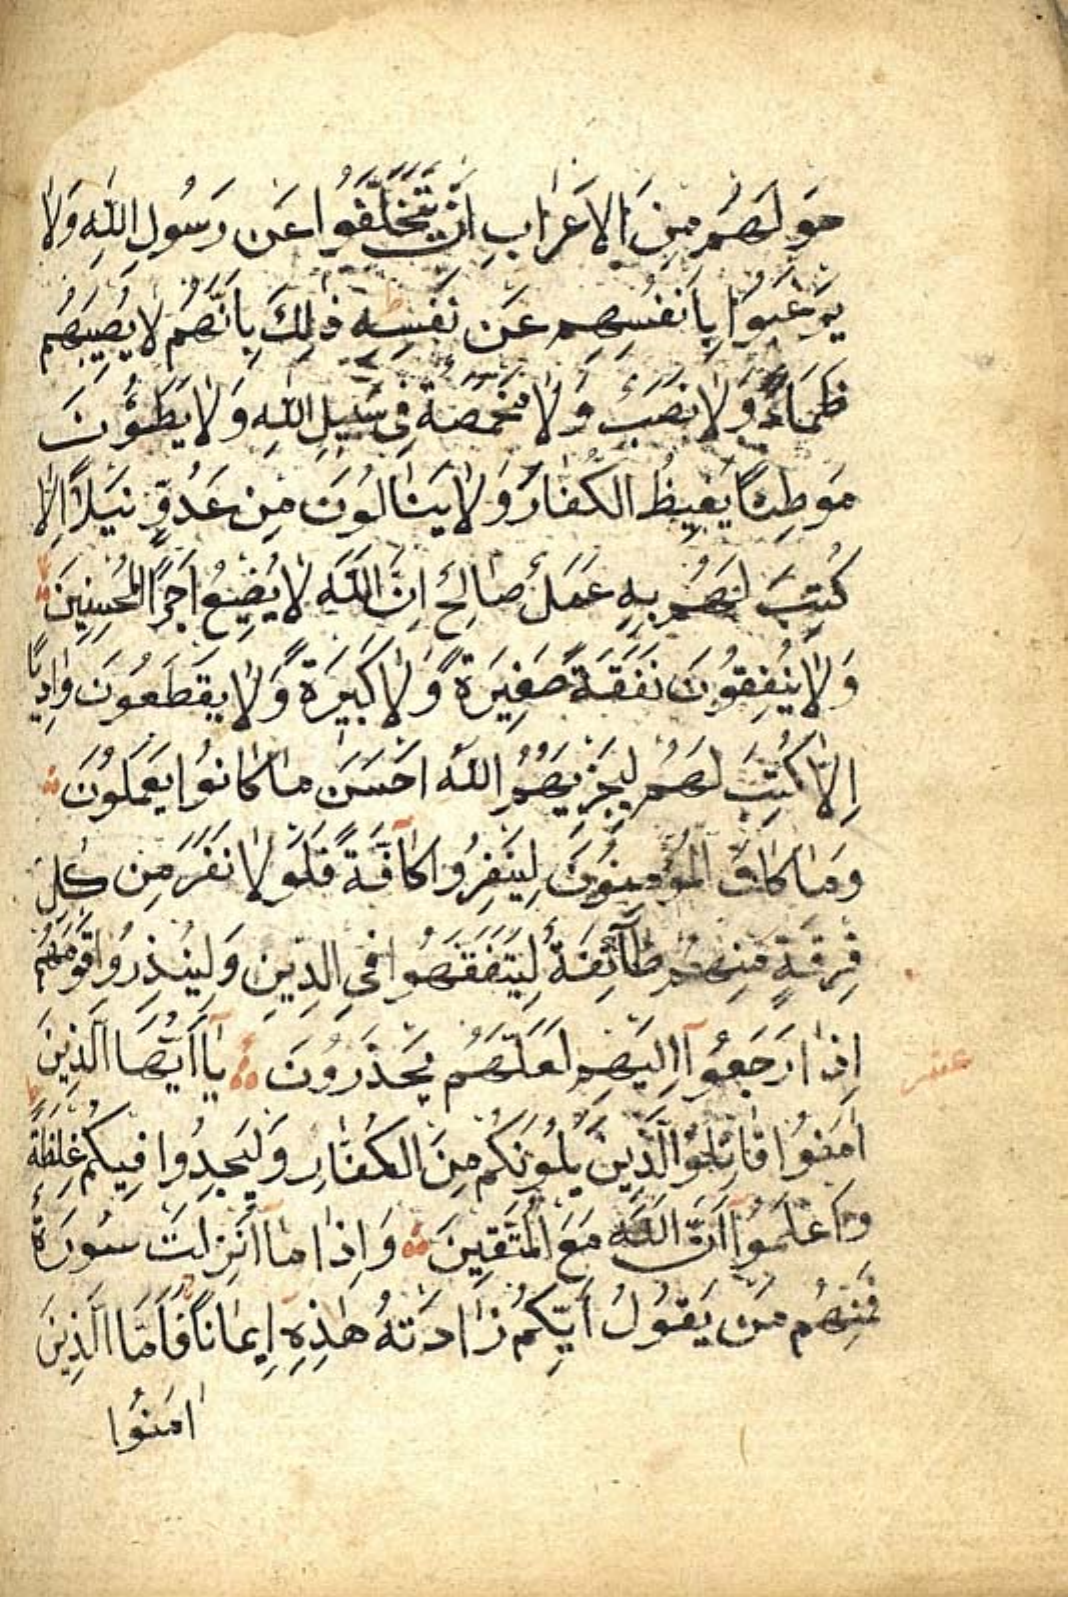 حَوْلَهُمْ مِنَ الْاَعْرَابِ اَنْ يَتَخَلَّفُوا عَنْ رَسُولِ اللّٰهِ وَلَا
يَرْغَبُوا بِاَنْفُسِهِمْ عَنْ نَفْسِهِ ط ذٰلِكَ بِاَنَّهُمْ لَا يُصِيبُهُمْ
ظَمَأٌ وَلَا نَصَبٌ وَلَا مَخْمَصَةٌ فِي سَبِيلِ اللّٰهِ وَلَا يَطَؤُنَ
مَوْطِئًا يَغِيظُ الْكُفَّارَ وَلَا يَنَالُونَ مِنْ عَدُوٍّ نَيْلًا اِلَّا
كُتِبَ لَهُمْ بِهِ عَمَلٌ صَالِحٌ اِنَّ اللّٰهَ لَا يُضِيعُ اَجْرَ الْمُحْسِنِينَ
وَلَا يُنْفِقُونَ نَفَقَةً صَغِيرَةً وَلَا كَبِيرَةً وَلَا يَقْطَعُونَ وَادِيًا
اِلَّا كُتِبَ لَهُمْ لِيَجْزِيَهُمُ اللّٰهُ اَحْسَنَ مَا كَانُوا يَعْمَلُونَ
وَمَا كَانَ الْمُؤْمِنُونَ لِيَنْفِرُوا كَآفَّةً فَلَوْلَا نَفَرَ مِنْ كُلِّ
فِرْقَةٍ مِنْهُمْ طَآئِفَةٌ لِيَتَفَقَّهُوا فِي الدِّينِ وَلِيُنْذِرُوا قَوْمَهُمْ
اِذَا رَجَعُوآ اِلَيْهِمْ لَعَلَّهُمْ يَحْذَرُونَ يَآ اَيُّهَا الَّذِينَ
اٰمَنُوا قَاتِلُوا الَّذِينَ يَلُونَكُمْ مِنَ الْكُفَّارِ وَلْيَجِدُوا فِيكُمْ غِلْظَةً ط
وَاعْلَمُوآ اَنَّ اللّٰهَ مَعَ الْمُتَّقِينَ وَاِذَا مَآ اُنْزِلَتْ سُورَةٌ
فَمِنْهُمْ مَنْ يَقُولُ اَيُّكُمْ زَادَتْهُ هٰذِهِ اِيمَانًا فَاَمَّا الَّذِينَ
اٰمَنُوا
عشر